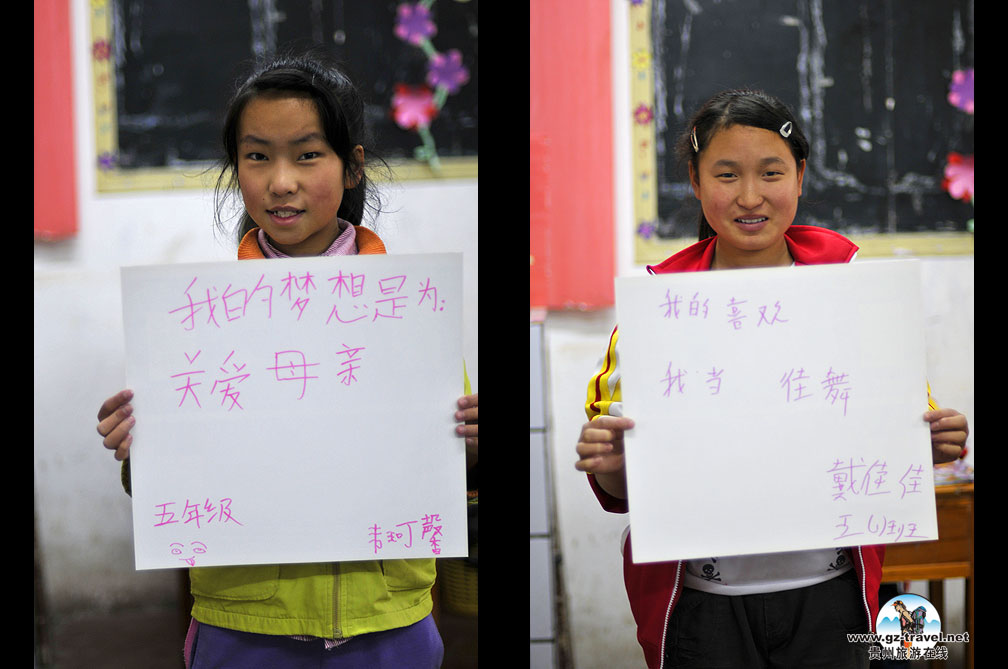 我的梦想是为:
关爱母亲
五年级
韦珂馨
我的喜欢
我当 佳舞
戴佳佳
五(1)班
www.gz-travel.net
贵州旅游在线